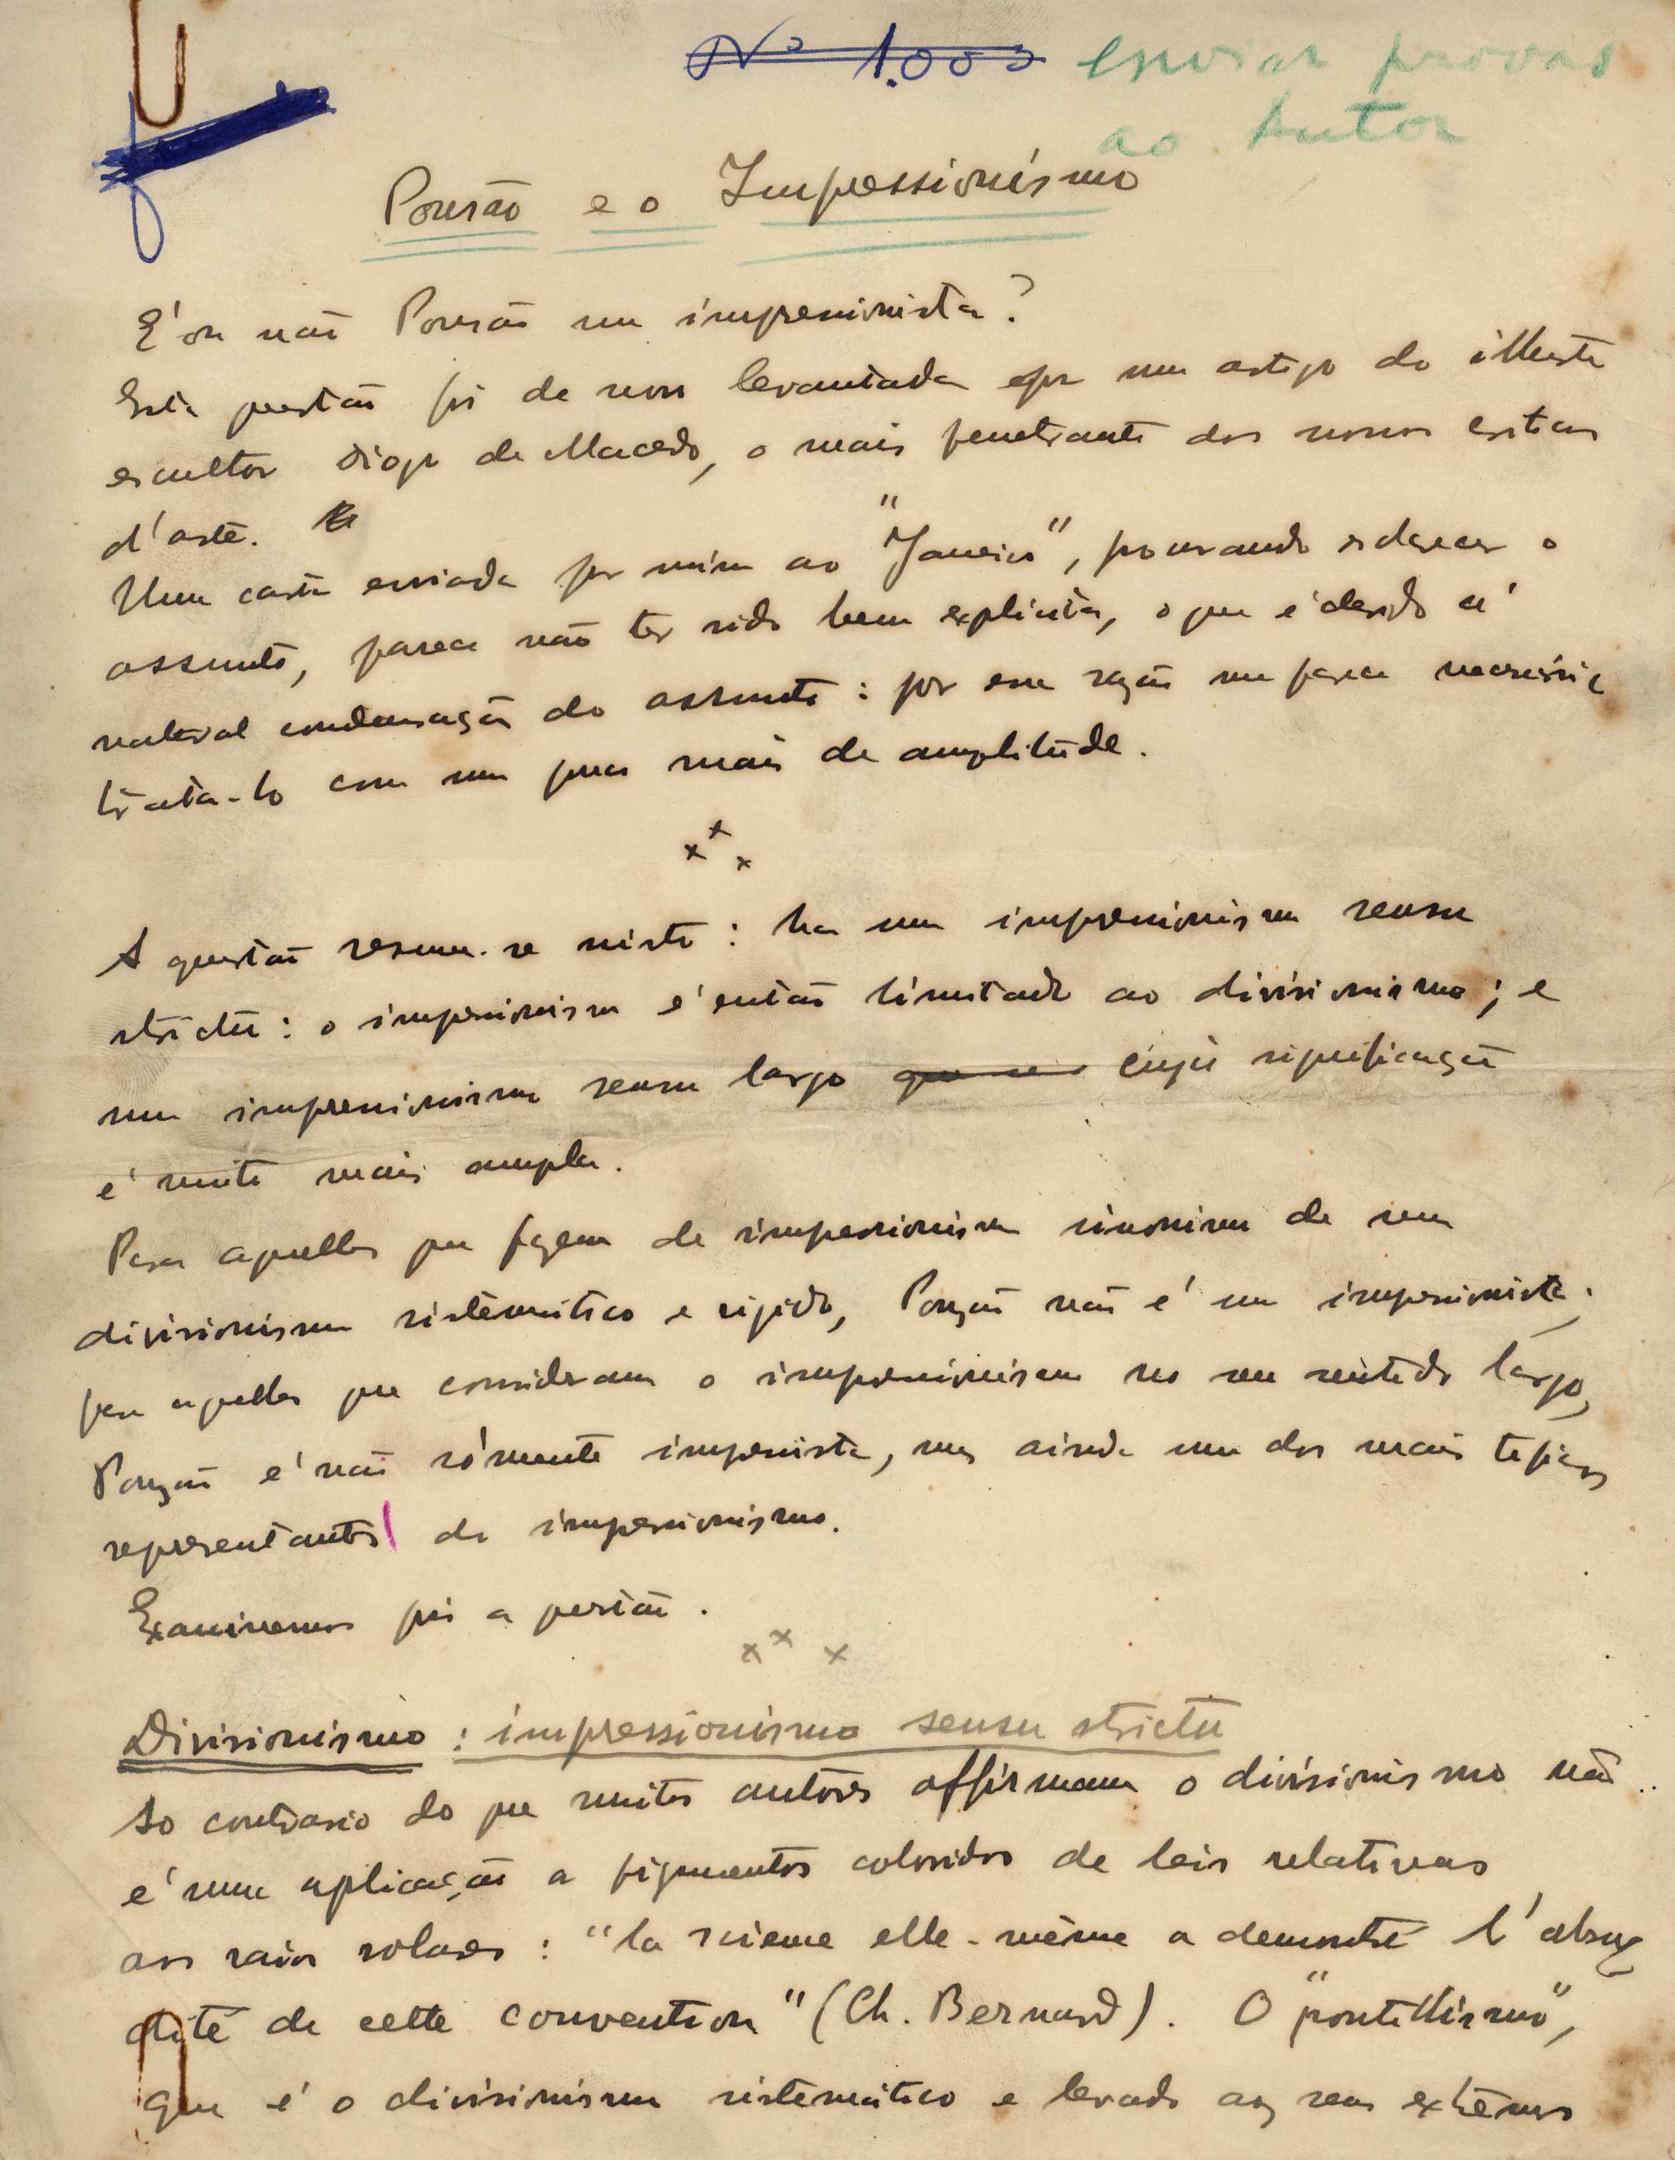 Nº 1.003 enviar provas
ao Autor
Pousão e o Impressionismo
É ou não Pousão um impressionista?
Esta questão foi de novo levantada por um artigo do illustre
escultor Diogo de Macedo, o mais penetrante dos nossos criticos
d'arte.
Uma carta enviada por mim ao "Janeiro", procurando esclarecer o
assunto, parece não ter sido bem explicita, o que é devido á
natural condensação do assunto: por essa razão me parece necessário
trata-lo com um pouco mais de amplitude.
x x x
A questão resume-se nisto: ha um impressionismo sensu
strictu: o impressionismo é então limitado ao divisionismo; e
um impressionismo sensu largo cuja significação
é muito mais ampla.
Para aquelles que fazem de impressionismo sinonimo de um
divisionismo sistemático e rigido, Pouzão não é um impressionista;
para aquelles que consideram o impressionismo no seu sentido largo,
Pouzão é não sómente impressionista, mas ainda um dos mais tipicos
representantes do impressionismo.
Examinemos pois a questão.
x x x
Divisionismo: impressionismo sensu strictu
Ao contrario do que muitos autores affirmam o divisionismo não
é uma aplicação a pigmentos coloridos de leis relativas
aos raios solares: "la science elle-même a demontré l'absur
dité de cette convention" (Ch. Bernard). O "pontillismo",
que é o divisionismo sistemático e levado aos seus extremos